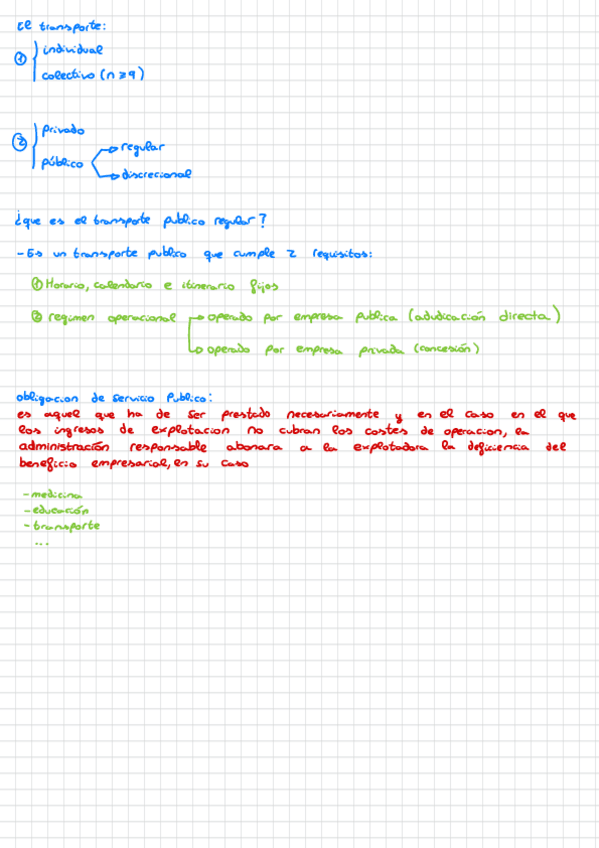 El transporte:
① individual
colectivo (n ≥ 9)
② privado
público → regular
→ discrecional
¿que es el transporte publico regular?
- Es un transporte publico que cumple 2 requisitos:
① Horario, calendario e itinerario fijos
② regimen operacional → operado por empresa publica (adudicación directa)
→ operado por empresa privada (concesión)
obligacion de servicio Publico:
es aquel que ha de ser prestado necesariamente y en el caso en el que
los ingresos de explotacion no cubran los costes de operacion, la
administración responsable abonara a la explotadora la deficiencia del
beneficio empresarial, en su caso
- medicina
- educación
- transporte
...